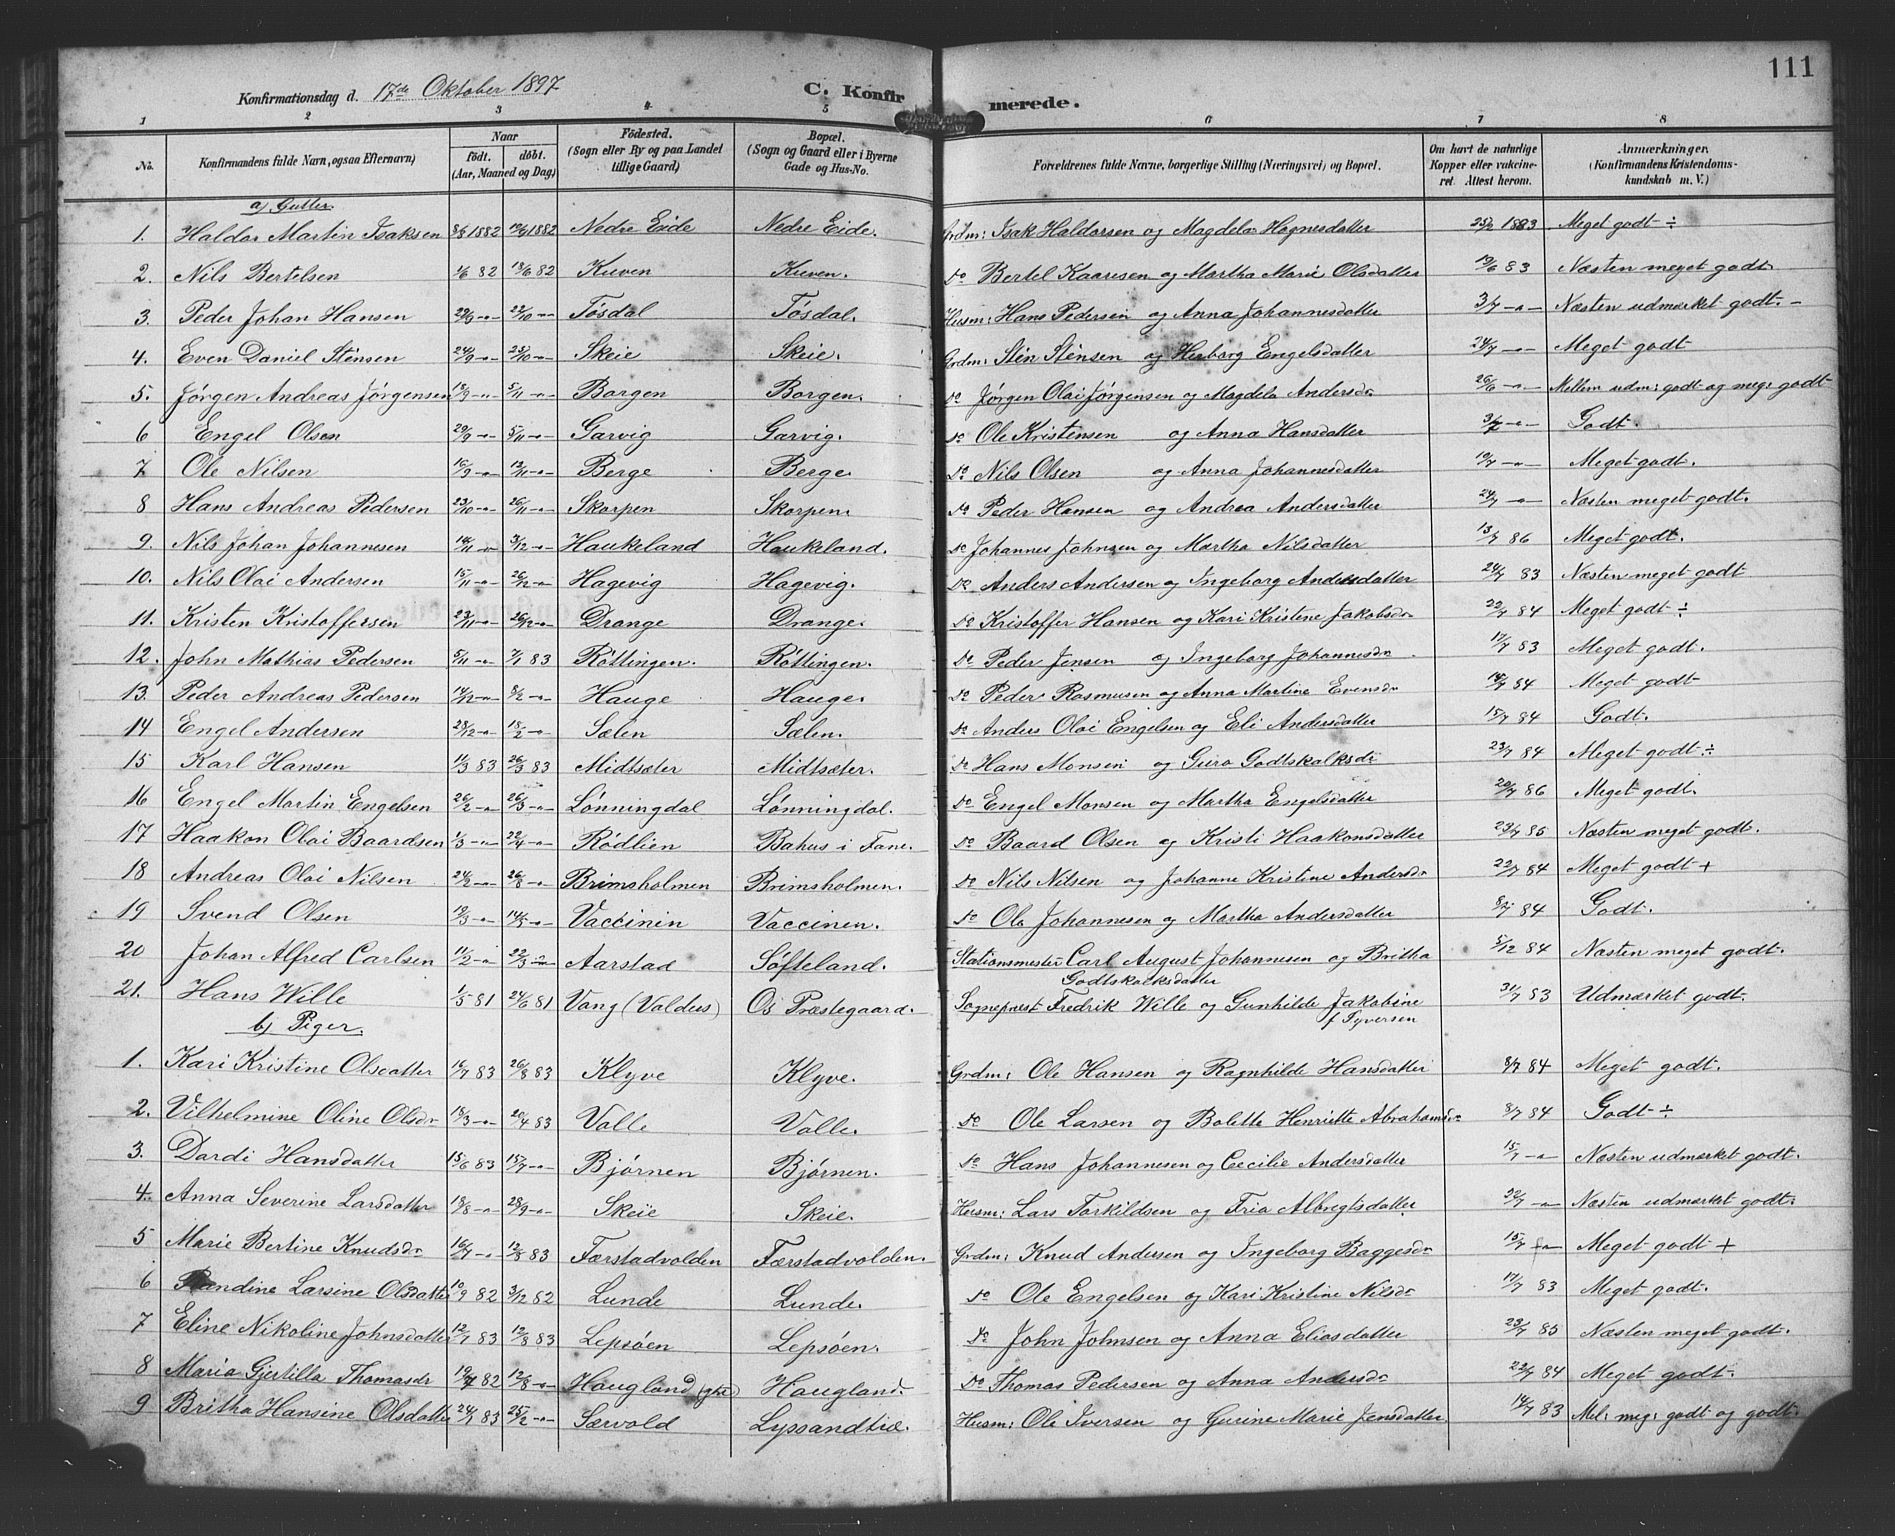 111
Konfirmationsdag d. 17de Oktober 1897 C. Konfirmerede.
1 2 3 4 5 6 7 8
No. Konfirmandens fulde Navn, ogsaa Efternavn) Naar født. døbt. (Aar, Maaned og Dag) Fødested. (Sogn eller By og paa Landet tillige Gaard) Bopæl. (Sogn og Gaard eller i Byerne Gade og Hus-No. Forældrenes fulde Navne, borgerlige Stilling (Næringsvei) og Bopæl. Om havt de naturlige Kopper eller vakcineret. Attest herom. Anmærkninger. (Konfirmandens Kristendomskundskab m. V.)
a) Gutter.
1. Haldor Martin Isaksen 1882 1882 Nedre Eide Nedre Eide. Grdm: Isak Haldorsen og Magdela Hagnesdatter 25/2 1883 Meget godt ÷
2. Nils Bertelsen 1/6 82 18/6 82 Kuven Kuven. Do Bertel Kaaresen og Martha Marie Olsdatter 19/6 83 Næsten meget godt.
3. Peder Johan Hansen 22/10 -"- Tøsdal Tøsdal. Husm: Hans Pedersen og Anna Johannesdatter 3/7 -"- Næsten udmærket godt. -
4. Even Daniel Stensen 24/9 -"- 25/10 -"- Skeie Skeie. Grdm: Sten Stensen og Herborg Engelsdatter 24/7 -"- Meget godt
5. Jørgen Andreas Jørgensen 18/9 -"- 5/11 -"- Borgen Borgen. Do Jørgen Olai Jørgensen og Magdela Andersdr 26/6 -"- Mellem udm: godt og meg: godt
6 Engel Olsen 29/9 -"- 5/11 -"- Garvig Garvig. Do Ole Kristensen og Anna Hansdatter 3/7 -"- Godt.
7 Ole Nilsen 16/9 -"- 12/11 -"- Berge Berge. Do Nils Olsen og Anna Johannesdatter 10/7 -"- Meget godt.
8 Hans Andreas Pedersen 23/10 -"- 26/11 -"- Skorpen Skorpen. Do Peder Hansen og Andrea Andersdatter 24/7 -"- Næsten meget godt.
9. Nils Johan Johannesen 14/11 -"- 3/12 -"- Haukeland Haukeland. Do Johannes Johnsen og Martha Nilsdatter 13/7 86 Meget godt.
10. Nils Olai Andersen 15/11 -"- 26/12 -"- Hagevig Hagevig. Do Anders Andersen og Ingeborg Andersdatter 24/7 83 Næsten meget godt
11. Kristen Kristoffersen 23/11 -"- 26/12 -"- Drange Drange. Do Kristoffer Hansen og Kari Kristine Jakobsdr 22/7 84 Meget godt ÷
12. John Mathias Pedersen 5/11 -"- 7/1 83 Røttingen. Røttingen. Do Peder Jensen og Ingeborg Johannesdr 17/7 83 Meget godt.
13. Peder Andreas Pedersen 14/12 -"- 8/2 -"- Hauge Hauge. Do Peder Rasmusen og Anna Martine Evensdr 14/7 84 Meget godt
14 Engel Andersen 28/12 -"- 18/2 -"- Sælen Sælen. Do Anders Olai Engelsen og Eli Andersdatter 15/7 84 Godt.
15 Karl Hansen 11/3 83 26/3 83 Midtsæter Midtsæter. Do Hans Monsen og Guro Godtskalksdr 23/7 84 Meget godt ÷
16 Engel Martin Engelsen 26/2 -"- 26/3 -"- Lønningdal Lønningdal. Do Engel Monsen og Martha Engelsdatter 20/7 86 Meget godt.
17 Haakon Olai Baardsen 1/3 -"- 22/4 -"- Rødlien Bahus i Fane. Do Baard Olsen og Kristi Haakonsdatter 23/7 85 Næsten meget godt.
18 Andreas Olai Nilsen 24/2 -"- 26/8 -"- Brimsholmen Brimsholmen. Do Nils Nilsen og Johanne Kristine Andersdr 22/7 84 Meget godt +
19 Svend Olsen 19/3 -"- Vaccinin Vaccinen. Do Ole Johannesen og Martha Andersdatter 8/7 84 Godt.
20 Johan Alfred Carlsen 11/2 -"- 22/3 -"- Aarstad Søfteland. Stationsmester Carl August Johannesen og Britha Godtskalksdatter 5/12 84 Næsten meget godt.
21. Hans Wille 1/5 81 24/6 81 Vang (Valders) Os Præstegaard. Sogneprest Fredrik Wille og Gunhilde Jakobine f Syversen 31/7 83 Udmærket godt.
b) Piger.
1. Kari Kristine Olsdatter 16/7 83 26/8 83 Klyve Klyve. Grdm: Ole Hansen og Ragnhilde Hansdatter 8/7 84 Meget godt.
2. Vilhelmine Oline Olsdr 18/3 -"- 20/4 83 Valle Valle. Do Ole Larsen og Bolette Henriette Abrahamsdr 8/7 84 Godt ÷
3. Dardi Hansdatter 15/6 83 15/7 -"- Bjørnen Bjørnen. Do Hans Johannesen og Cecilie Andersdatter 15/7 -"- Næsten udmærket godt.
4. Anna Severine Larsdatter 18/8 -"- 28/9 -"- Skeie Skeie. Husm: Lars Torkildsen og Fria Albregtsdatter 22/7 -"- Næsten udmærket godt.
5 Marie Bertine Knudsdr 16/7 -"- 12/8 83 Færstadvolden Færstadvolden. Grdm: Knud Andersen og Ingeborg Baggesdr 15/7 -"- Meget godt +
6 Randine Larsine Olsdatter 10/9 82 3/12 82 Lunde Lunde. Do Ole Engelsen og Kari Kristine Nilsdr 17/7 83 Meget godt.
7 Eline Nikoline Johnsdatter 12/7 83 12/8 83 Lepsøen Lepsøen. Do John Johnsen og Anna Eliasdatter 23/7 85 Næsten meget godt.
8 Maria Gjertilla Thomasdr 82 12/8 -"- Haugland Haugland. Do Thomas Pedersen og Anna Andersdr 22/7 84 Meget godt.
9 Britha Hansine Olsdatter 83 25/2 -"- Særvold Lyssandtræ. Husm: Ole Iversen og Gurine Marie Jensdatter 14/7 83 Mel: meg: godt og godt.